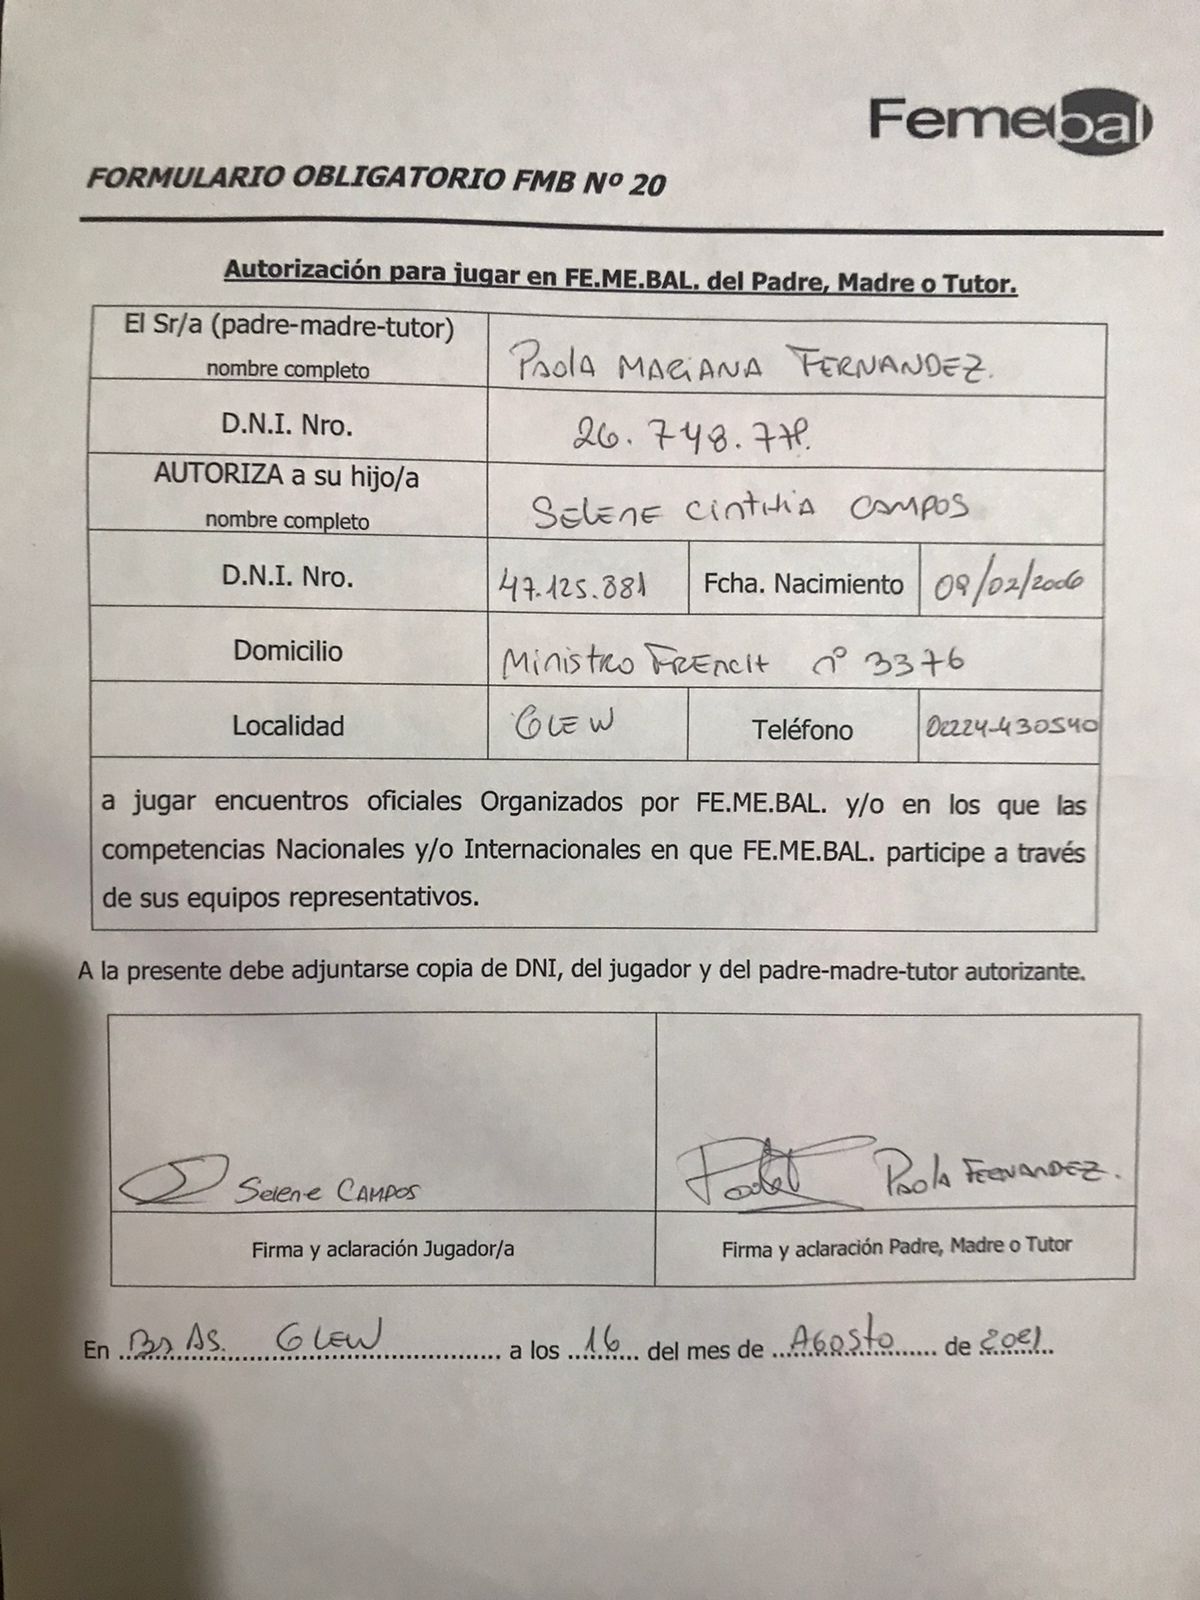 Femebal
FORMULARIO OBLIGATORIO FMB Nº 20
Autorización para jugar en FE.ME.BAL. del Padre, Madre o Tutor.
El Sr/a (padre-madre-tutor)
nombre completo
Paola MARiANA FERNANDEZ.
D.N.I. Nro.
26.748.779.
AUTORIZA a su hijo/a
nombre completo
SElENE CintHiA CAMPOS
D.N.I. Nro.
47.125.881
Fcha. Nacimiento
09/02/2006
Domicilio
MiniStRO FREncH nº 3376
Localidad
GLEW
Teléfono
02224-430540
a jugar encuentros oficiales Organizados por FE.ME.BAL. y/o en los que las
competencias Nacionales y/o Internacionales en que FE.ME.BAL. participe a través
de sus equipos representativos.
A la presente debe adjuntarse copia de DNI, del jugador y del padre-madre-tutor autorizante.
Selene CAMPOS
Paola FERNANDEZ.
Firma y aclaración Jugador/a
Firma y aclaración Padre, Madre o Tutor
En Bs AS. GLEW a los 16 del mes de AGOSto de 2021